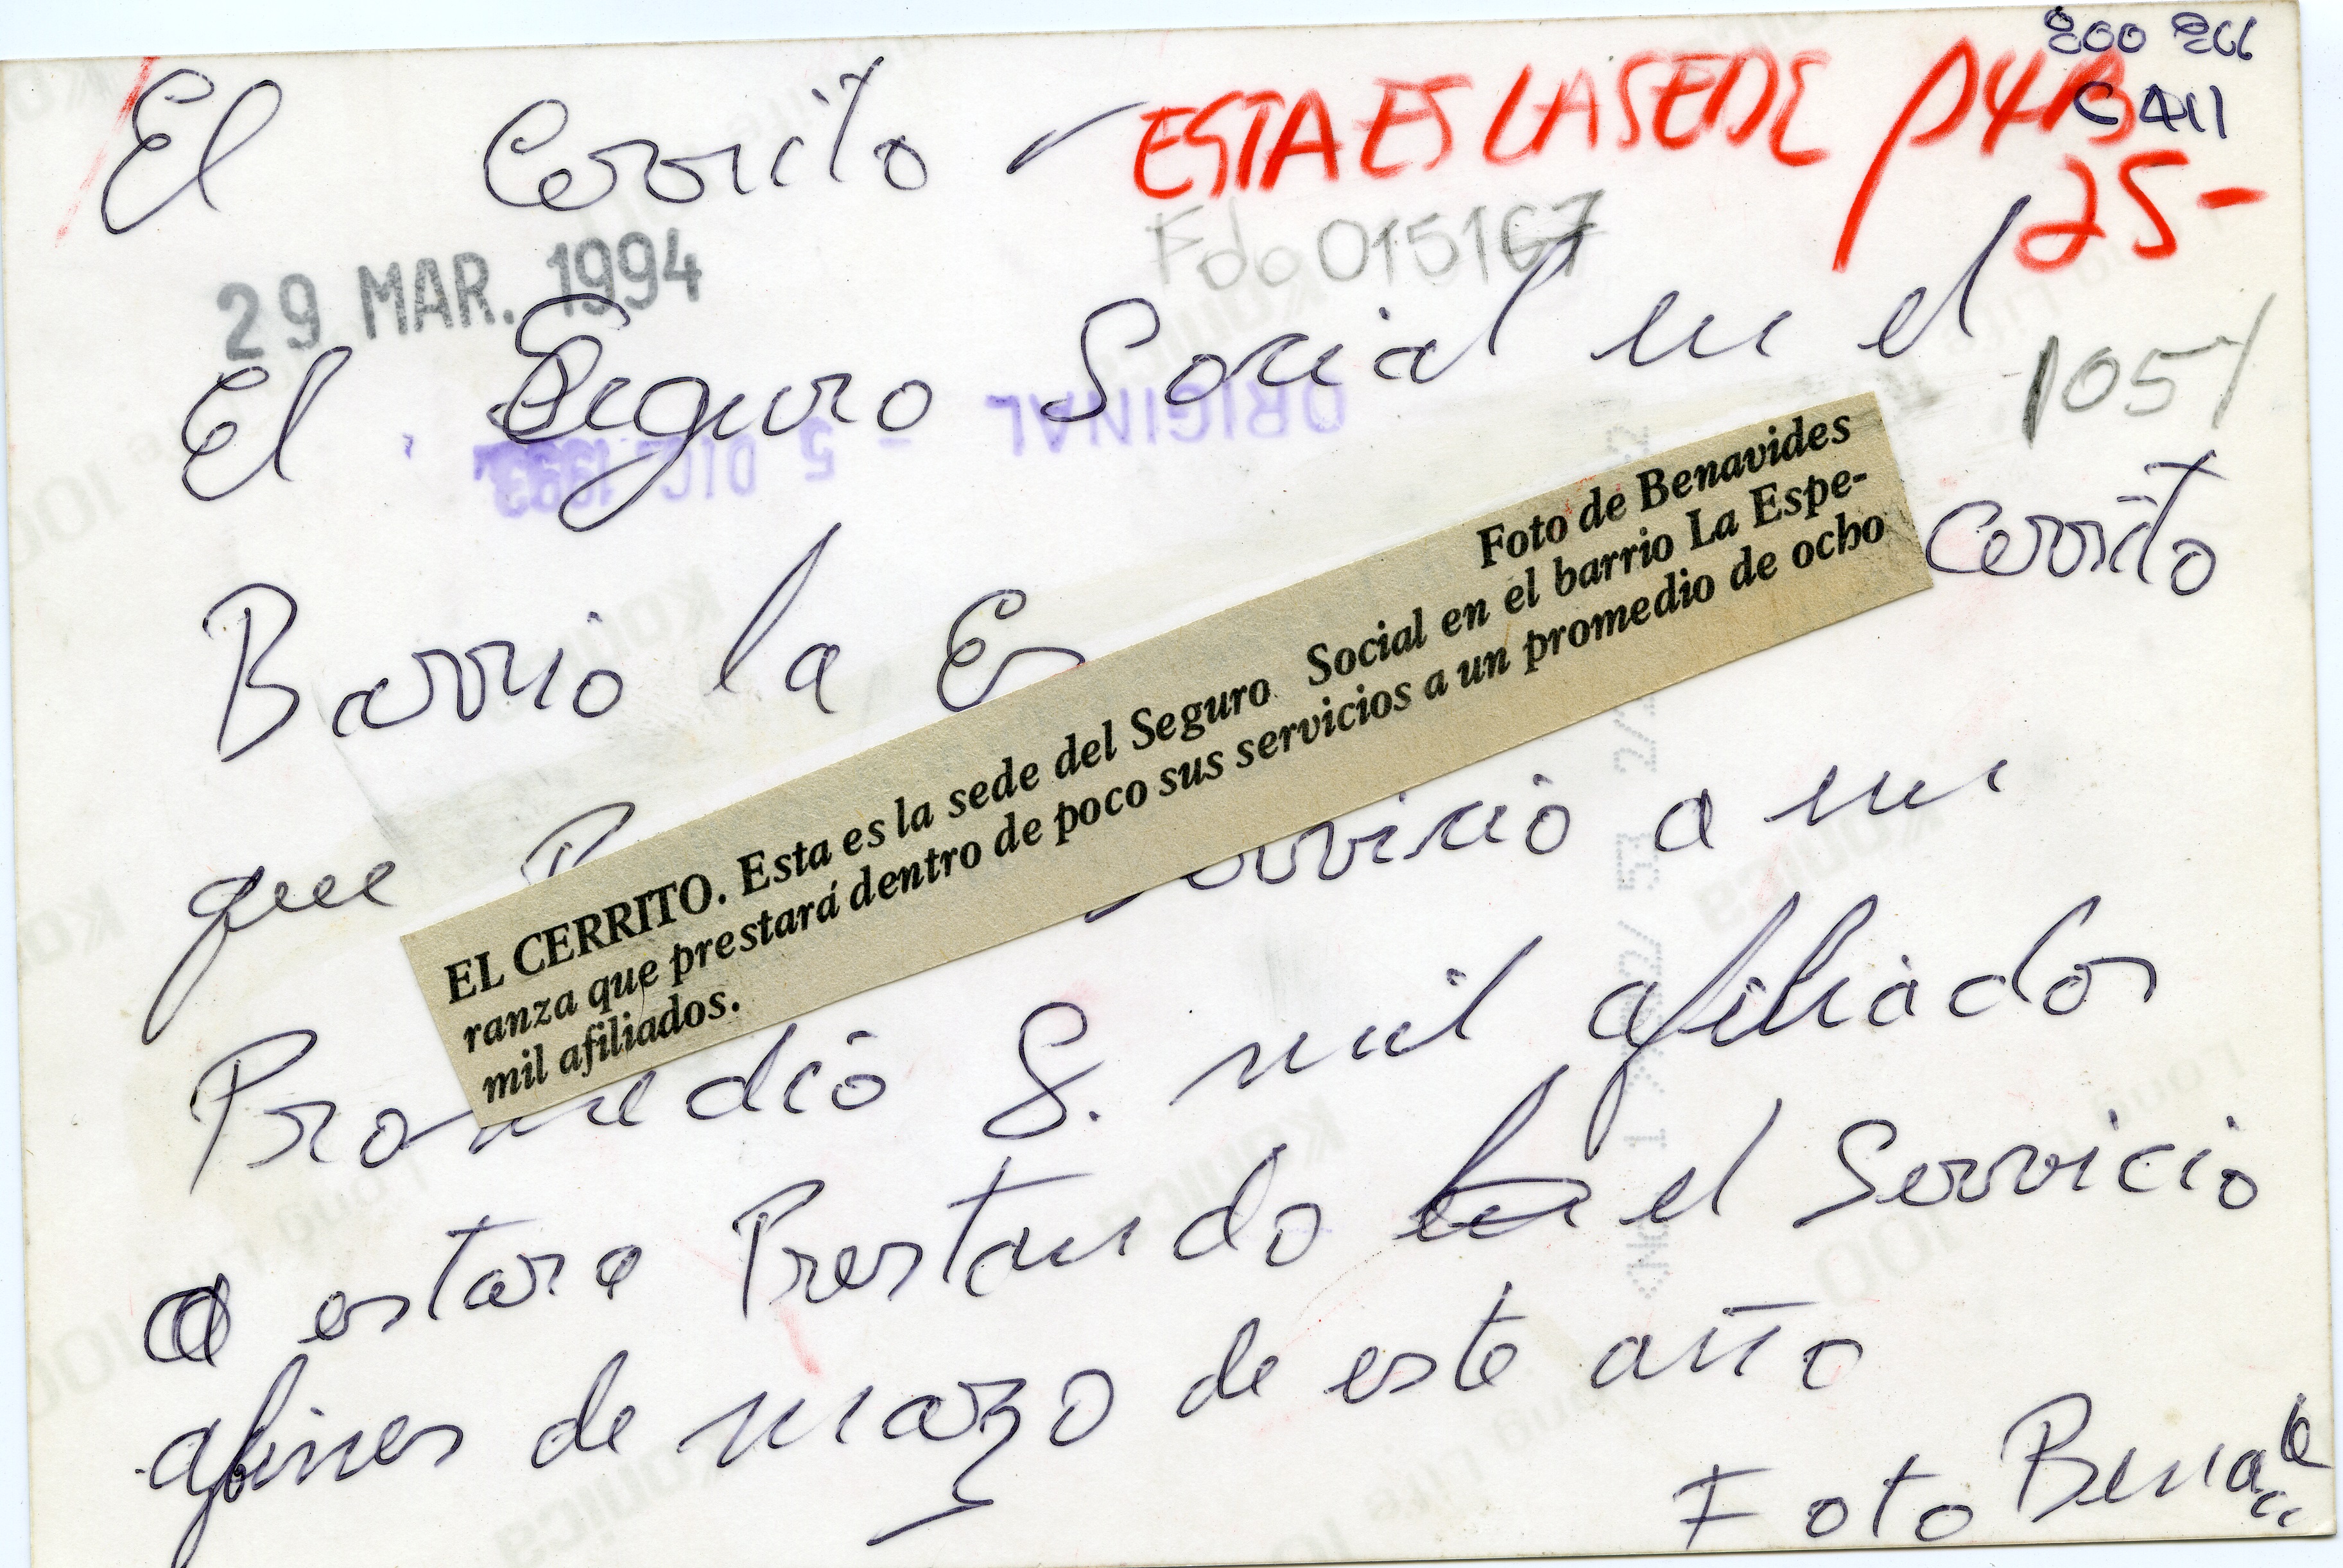 El Cerrito -
ESTA ES LA SEDE P4B
25-
C 411
Fdo 015167
29 MAR. 1994
El Seguro Social en el
1054
ORIGINAL - 5 DIC 1993
Barrio la Es Cerrito
Foto de Benavides
EL CERRITO. Esta es la sede del Seguro Social en el barrio La Espe-
ranza que prestará dentro de poco sus servicios a un promedio de ocho
mil afiliados.
que servicio a un
Promedio 8. mil afiliados
estara Prestando el Servicio
afines de marzo de este año
Foto Bena
Konica